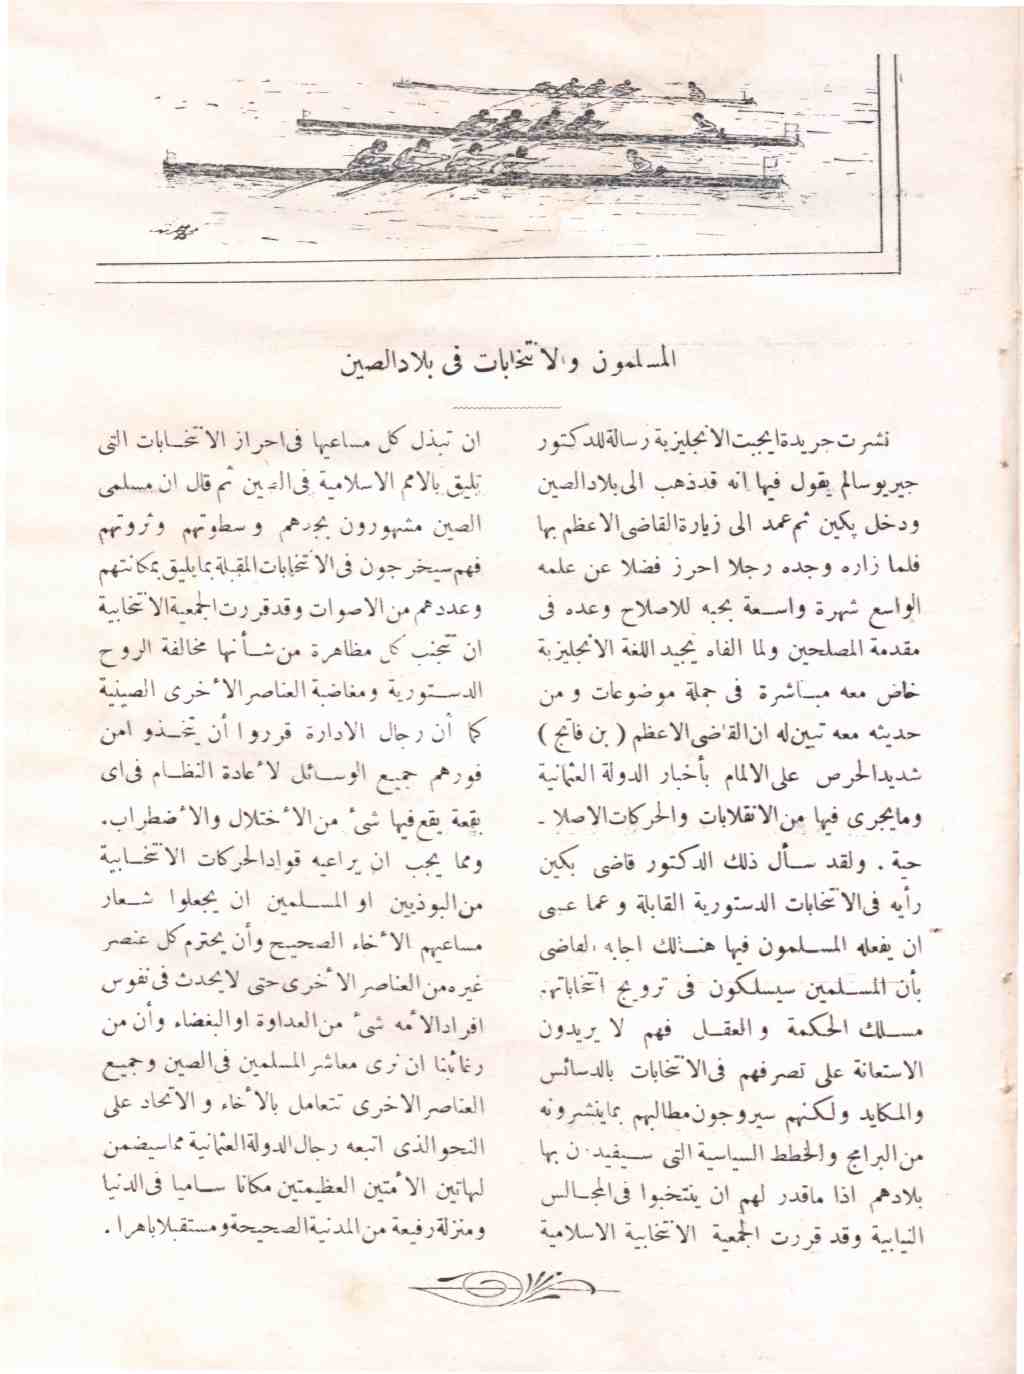 المسلمون والانتخابات فى بلاد الصين
نشرت جريدة ايجبت الانجليزية رسالة للدكتور
جيريو سالم يقول فيها انه قد ذهب الى بلاد الصين
ودخل پكين ثم عمد الى زيارة القاضى الاعظم بها
فلما زاره وجده رجلا احرز فضلا عن علمه
الواسع شهرة واسعة بحبه للاصلاح وعده فى
مقدمة المصلحين ولما الفاه يجيد اللغة الانجليزية
خاض معه مباشرة فى جملة موضوعات ومن
حديثه معه تبين له ان القاضى الاعظم ( بن فاتح )
شديد الحرص على الالمام بأخبار الدولة العثمانية
وما يجرى فيها من الانقلابات والحركات الاصلا ـ
حية . ولقد سأل ذلك الدكتور قاضى بكين
رأيه فى الانتخابات الدستورية القابلة وعما عسى
ان يفعله المسلمون فيها هنالك اجابه القاضى
بأن المسلمين سيسلكون فى ترويج انتخاباتهم
مسلك الحكمة والعقل فهم لا يريدون
الاستعانة على تصرفهم فى الانتخابات بالدسائس
والمكايد ولكنهم سيروجون مطالبهم بما ينشرونه
من البرامج والخطط السياسية التى سيفيدون بها
بلادهم اذا ما قدر لهم ان ينتخبوا فى المجالس
النيابية وقد قررت الجمعية الانتخابية الاسلامية
ان تبذل كل مساعيها فى احراز الانتخابات التى
تليق بالامم الاسلامية فى الصين ثم قال ان مسلمى
الصين مشهورون بجدهم وسطوتهم وثروتهم
فهم سيخرجون فى الانتخابات المقبلة بما يليق بمكانتهم
وعددهم من الاصوات وقد قررت الجمعية الانتخابية
ان تتجنب كل مظاهرة من شأنها مخالفة الروح
الدستورية ومغاضبة العناصر الأخرى الصينية
كما أن رجال الادارة قرروا أن يتخذوا من
فورهم جميع الوسائل لأعادة النظام فى اى
بقعة يقع فيها شىء من الأختلال والأضطراب.
ومما يجب ان يراعيه قواد الحركات الانتخابية
من البوذيين او المسلمين ان يجعلوا شعار
مساعيهم الأخاء الصحيح وأن يحترم كل عنصر
غيره من العناصر الأخرى حتى لا يحدث فى نفوس
افراد الأمه شىء من العداوة او البغضاء وأن من
رغائبنا ان نرى معاشر المسلمين فى الصين وجميع
العناصر الاخرى تتعامل بالأخاء والاتحاد على
النحو الذى اتبعه رجال الدولة العثمانية مما سيضمن
لهاتين الأمتين العظيمتين مكانا ساميا فى الدنيا
ومنزلة رفيعة من المدنية الصحيحة ومستقبلا باهرا .